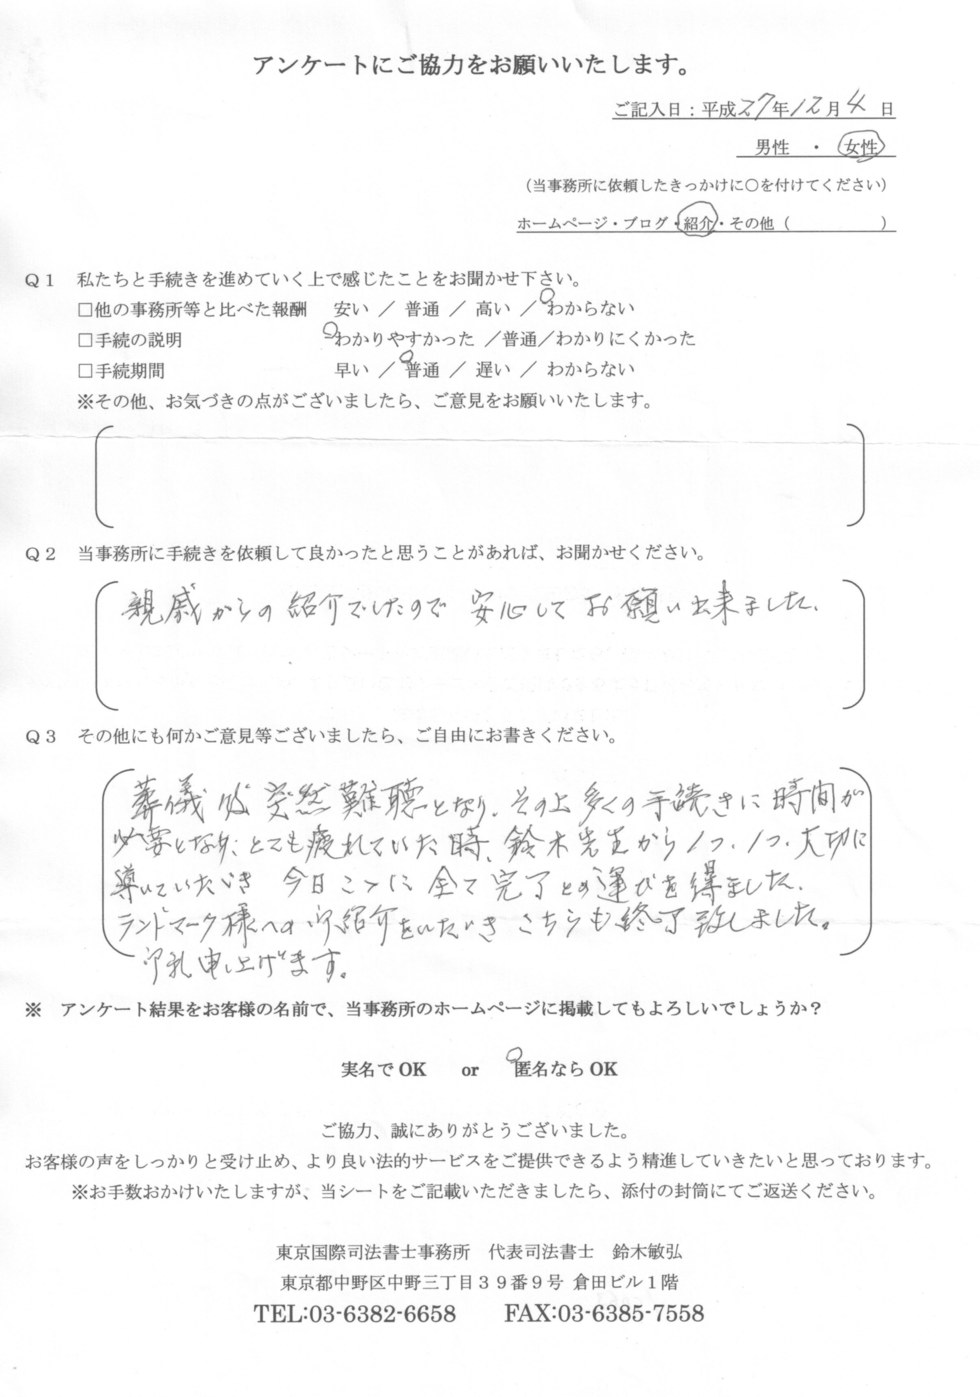 アンケートにご協力をお願いいたします。
ご記入日：平成27年12月4日
男性　・　女性
（当事務所に依頼したきっかけに○を付けてください）
ホームページ・ブログ・紹介・その他（　　　　　）
Ｑ１　私たちと手続きを進めていく上で感じたことをお聞かせ下さい。
□他の事務所等と比べた報酬　安い ／ 普通 ／ 高い ／ わからない
□手続の説明　わかりやすかった ／普通／わかりにくかった
□手続期間　早い ／ 普通 ／ 遅い ／ わからない
※その他、お気づきの点がございましたら、ご意見をお願いいたします。
Ｑ２　当事務所に手続きを依頼して良かったと思うことがあれば、お聞かせください。
親戚からの紹介でしたので 安心して お願い出来ました。
Ｑ３　その他にも何かご意見等ございましたら、ご自由にお書きください。
葬儀後 突然難聴となり、その上多くの手続きに時間が
必要となり、とても疲れていた時、鈴木先生から1つ、1つ、大切に
導いていただき 今日ここに全て完了との運びを得ました。
ランドマーク様への御紹介をいただきこちらも終了致しました。
御礼申し上げます。
※　アンケート結果をお客様の名前で、当事務所のホームページに掲載してもよろしいでしょうか？
実名でOK　or　匿名ならOK
ご協力、誠にありがとうございました。
お客様の声をしっかりと受け止め、より良い法的サービスをご提供できるよう精進していきたいと思っております。
※お手数おかけいたしますが、当シートをご記載いただきましたら、添付の封筒にてご返送ください。
東京国際司法書士事務所　代表司法書士　鈴木敏弘
東京都中野区中野三丁目３９番９号 倉田ビル１階
TEL:03-6382-6658　FAX:03-6385-7558